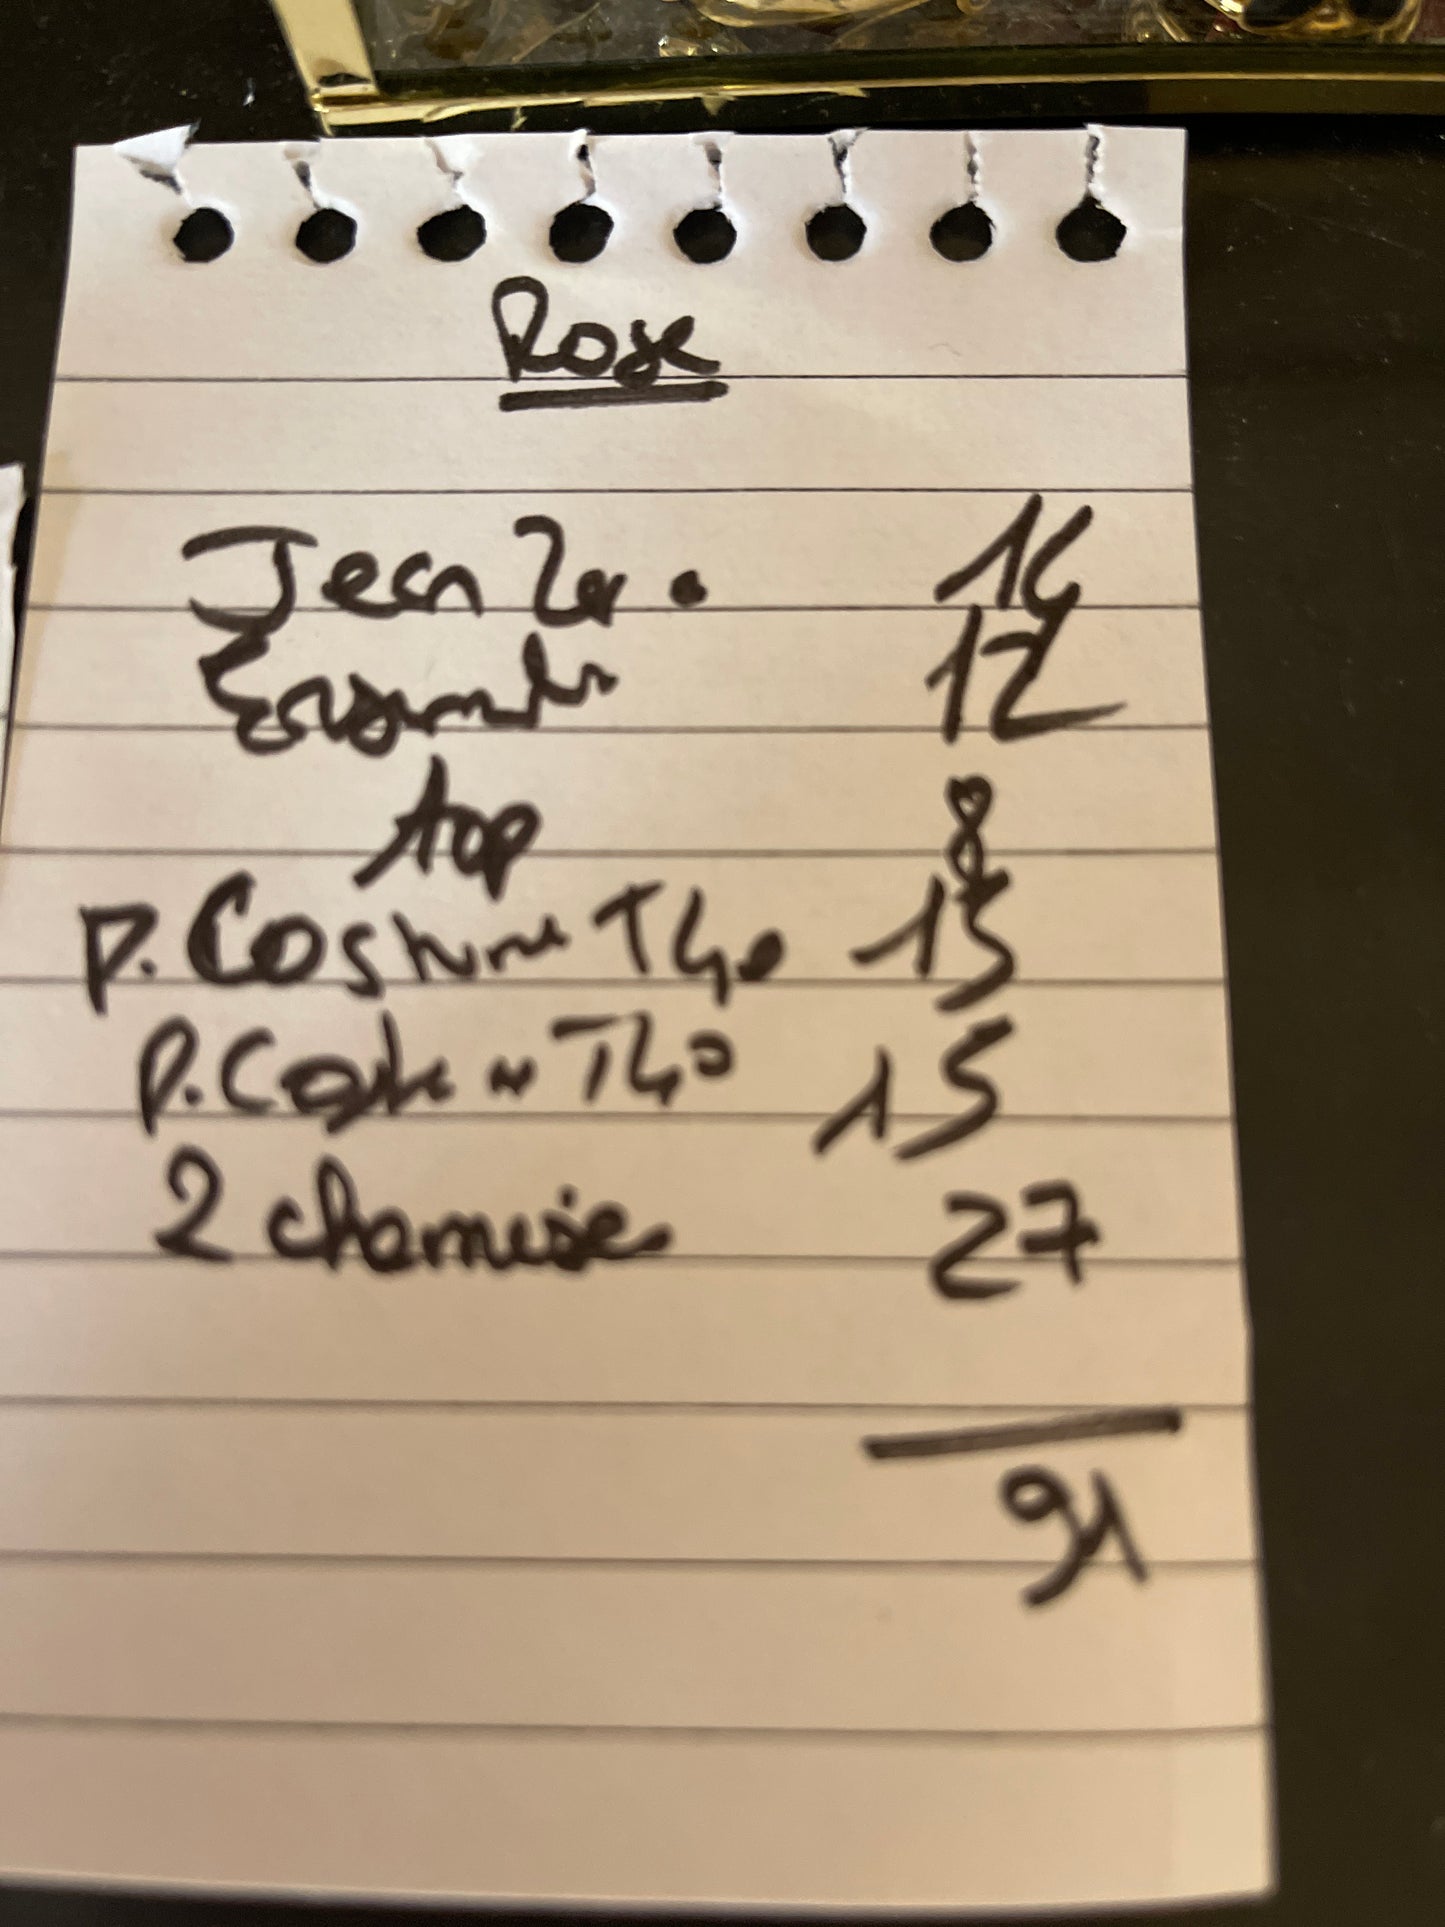 Rose
Jean Zara 14
Ensemble 12
top 8
P. Costume T40 15
P. Costume T40 15
2 chemise 27
91